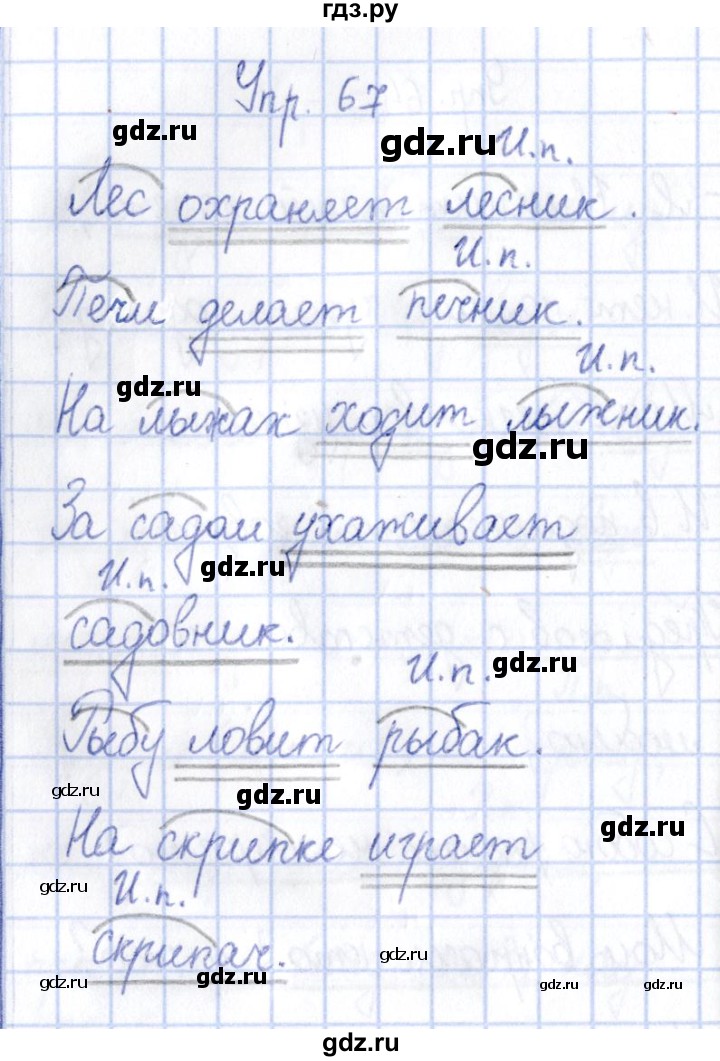 гдз.ру
Упр. 67
gdz.ru
gdz.ru
И.п.
Лес охраняет лесник.
И.п.
Печи делает печник.
И.п.
gdz.ru
На лыжах ходит лыжник.
gdz.ru
За садом ухаживает
И.п.
gdz.ru
садовник.
И.п.
gdz.ru
Рыбу ловит рыбак.
gdz.ru
gdz.ru
gdz.ru
На скрипке играет
gdz.ru
И.п.
скрипач.
gdz.ru
gdz.ru
gdz.ru
gdz.ru
gdz.ru
gdz.ru